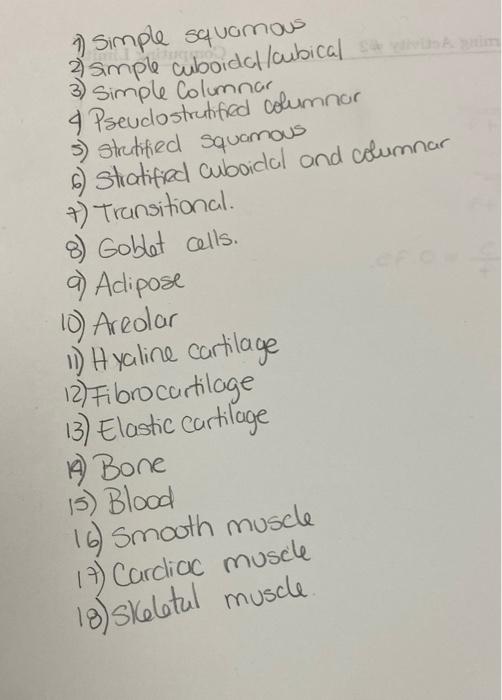 1) Simple squamous
2) Simple cuboidal/cubical
3) Simple Columnar
4) Pseudostratified columnar
5) Stratified squamous
6) Stratified cuboidal and columnar
7) Transitional.
8) Goblet cells.
9) Adipose
10) Areolar
11) Hyaline cartilage
12) Fibrocartilage
13) Elastic cartilage
14) Bone
15) Blood
16) Smooth muscle
17) Cardiac muscle
18) Skeletal muscle.